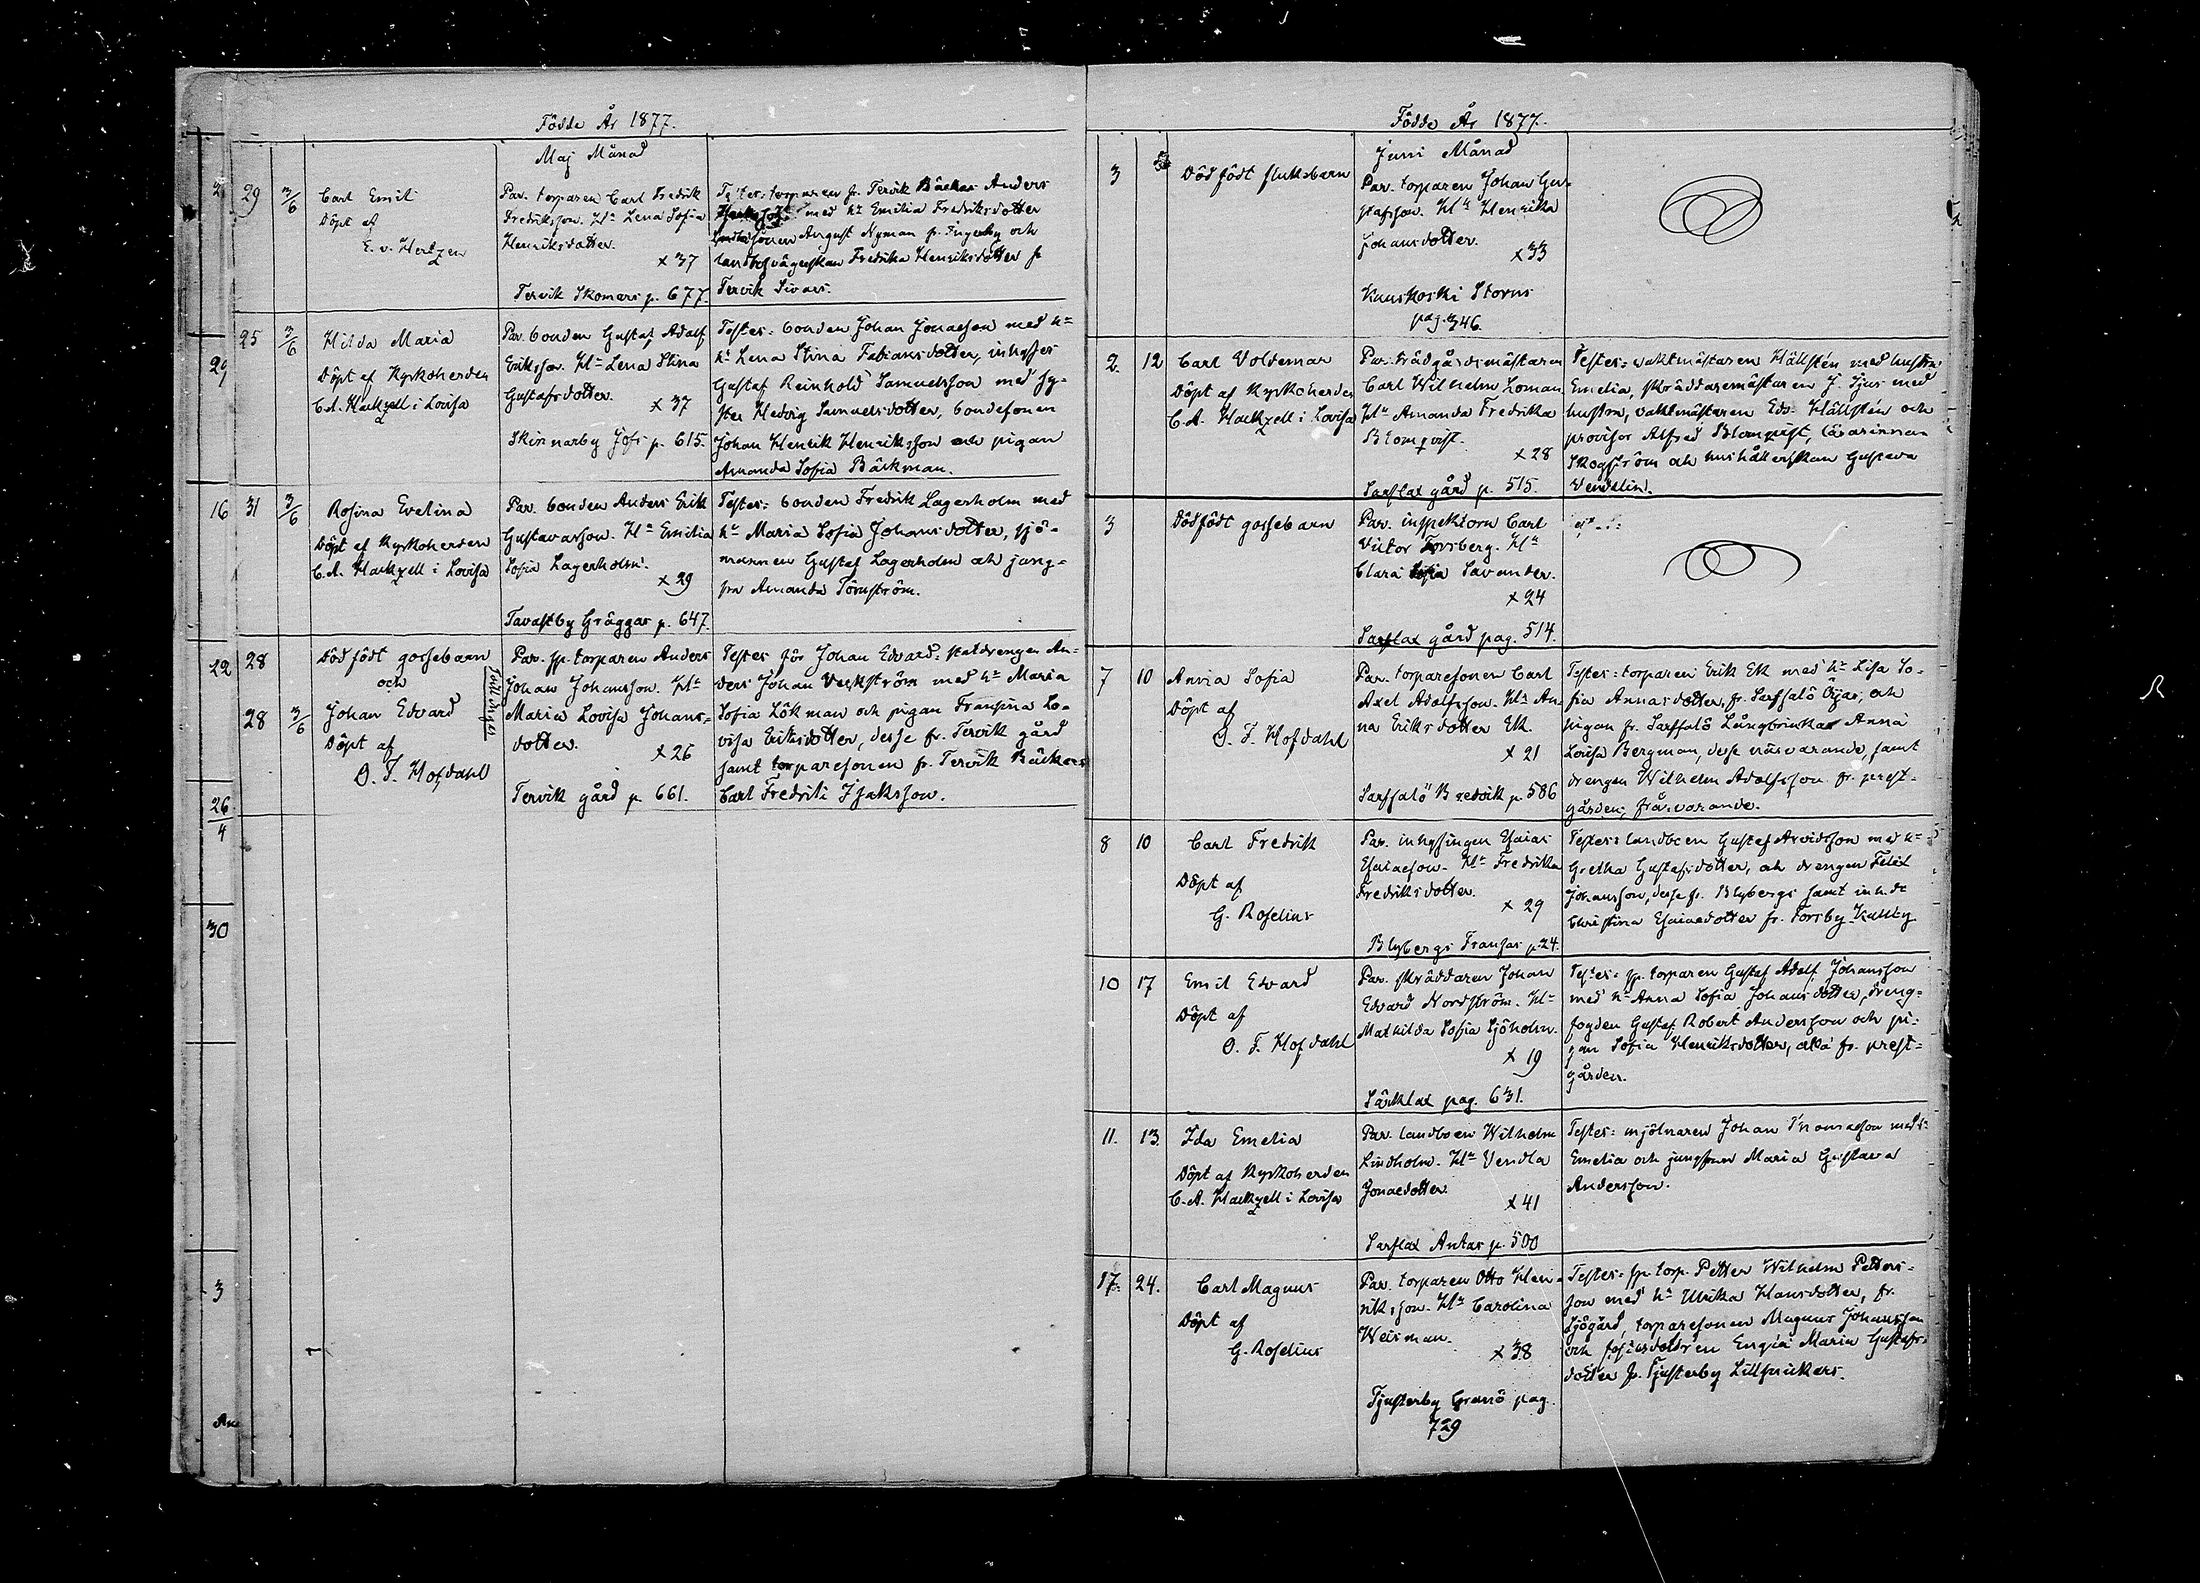 Födde År 1877.
Maj Månad
29 3/6 Carl Emil
Döpt af
E. v. Hertzen
Par. torparen Carl Fredrik
Fredriksson. H:u Lena Sofia
Henriksdotter.
x 37
Tervik Skomars p. 677.
Testes: torparen fr. Tervik Bäckas Anders
med h:u Emilia Fredriksdotter
August Nyman fr. Ingerby och
Fredrika Henriksdotter fr
Tervik Sivars.
25 3/6 Hilda Maria
Döpt af Kyrkoherden
C. A. Hackzell i Lovisa
Par. bonden Gustaf Adolf
Eriksson. H:u Lena Stina
Gustafsdotter.
x 37
Skinnarby Jofs p. 615.
Testes: bonden Johan Jonaesson med h:u
Lena Stina Fabiansdotter, inhyses
Gustaf Reinhold Samuelsson med sy-
ster Hedvig Samuelsdotter, bondesonen
Johan Henrik Henriksson och pigan
Amanda Sofia Bäckman.
31 3/6 Rosina Evelina
Döpt af Kyrkoherden
C. A. Hackzell i Lovisa
Par. bonden Anders Erik
Gustavsson. H:u Emilia
Sofia Lagerholm.
x 29
Tavastby Gräggas p. 647.
Testes: bonden Fredrik Lagerholm med
h:u Maria Sofia Johansdotter, sjö-
mannen Gustaf Lagerholm och jung-
fru Amanda Törnström.
28 Dödfödt gossebarn
och
28 3/6 Johan Edvard
Döpt af
O. F. Hofdahl
tvillingar
Par. sp. torparen Anders
Johan Johansson. H:u
Maria Lovisa Johans-
dotter.
x 26
Tervik gård p. 661.
Testes för Johan Edvard: statdrengen An-
ders Johan Veckström med h:u Maria
Sofia Lökman och pigan Fransina Lo-
visa Eriksdotter, desse fr. Tervik gård
samt torparesonen fr. Tervik Bäckers
Carl Fredrik Isaksson.
2
29
16
22
26
4
30
3
Födde År 1877.
Juni Månad
3 Dödfödt flickebarn
Par. torparen Johan Gu-
stafsson. H:u Henrika
Johansdotter.
x 33
Kuuskoski Storus
pag. 346.
2. 12 Carl Voldemar
Döpt af Kyrkoherden
C. A. Hackzell i Lovisa
Par. trädgårdsmästaren
Carl Wilhelm Loman
H:u Amanda Fredrika
Blomqvist.
x 28
Sarflax gård p. 515.
Testes: vaktmästaren Hällstén med hustru
Emelia, skräddaremästaren J. Sjus med
hustru, vaktmästaren Edv. Hällstén och
provisor Alfred Blomqvist, lärarinnan
Skogström och hushållerskan Gustava
Vendelin.
3 Dödfödt gossebarn
Par. inspektorn Carl
Victor Forsberg. H:u
Clara Sofia Savander.
x 24
Sarflax gård pag. 514.
7 10 Anna Sofia
Döpt af
O. F. Hofdahl
Par. torparesonen Carl
Axel Adolfsson. H:u An-
na Eriksdotter Ek.
x 21
Sarfsalö Bredvik p. 586
Testes: torparen Erik Ek med h:u Lisa So-
fia Annasdotter, fr. Sarfsalö Öjar, och
pigan fr. Sarfsalö Långbrinkas Anna
Lovisa Bergman, desse närvarande, samt
drengen Wilhelm Adolfsson fr. prest-
gården, frånvarande.
8 10 Carl Fredrik
Döpt af
G. Roselius
Par. inhysingen Esaias
Esaiaesson. H:u Fredrika
Fredriksdotter.
x 29
Blybergs Fransas p. 24.
Testes: landboen Gustaf Arvidsson med h:u
Gretha Gustafsdotter, och drengen Felix
Johansson, desse fr. Blybergs samt inh. dr
Christina Esaiaedotter fr. Forsby Kullby
10 17 Emil Edvard
Döpt af
O. F. Hofdahl
Par. skräddaren Johan
Edvard Nordström. H:u
Mathilda Sofia Sjöholm.
x 19
Särklax pag. 631.
Testes: sp. torparen Gustaf Adolf Johansson
med h:u Anna Sofia Johansdotter, dreng-
fogden Gustaf Robert Andersson och pi-
gan Sofia Henriksdotter, alla fr. prest-
gården.
11. 13. Ida Emelia
Döpt af Kyrkoherden
C. A. Hackzell i Lovisa
Par. landboen Wilhelm
Lindholm. H:u Vendla
Jonaedotter.
x 41
Sarflax Antas p. 500
Testes: mjölnaren Johan Thomaeson med h:
Emelia och jungfrun Maria Gustava
Andersson.
17. 24. Carl Magnus
Döpt af
G. Roselius
Par. torparen Otto Hen-
riksson. H:u Carolina
Weisman.
x 38
Tjusterby Granö pag.
729
Testes: sp. torp. Petter Wilhelm Petters-
son med h:u Ulrika Hansdotter, fr.
Sjögård, torparesonen Magnus Johansson
och Engia Maria Gustafs-
dotter fr. Tjusterby Lillfrickers.